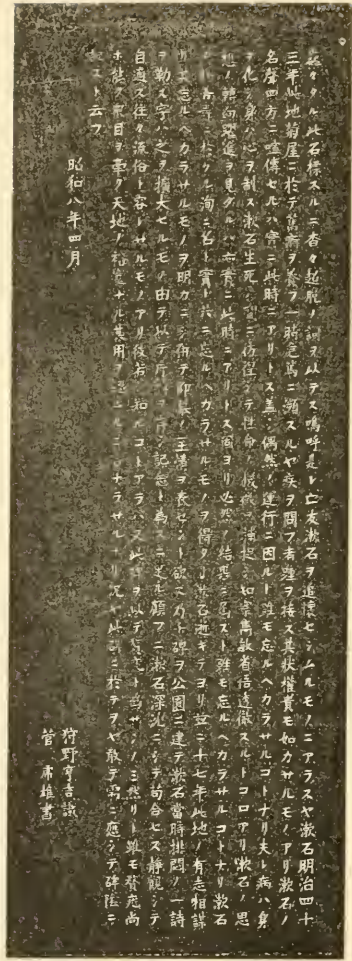 タル此石標スルニ杳々超脱ノ詞ヲ以テス嗚呼是レ亡友漱石ヲ追懐セシムルモノニアラスヤ漱石明治四十
三年此地菊屋ニ於テ舊痾ヲ養フ一時危篤ニ瀕スルヤ疾ヲ問フ者踵ヲ接ス其状權貴モ如カサルモノアリ漱石ノ
名聲四方ニ喧傳セルハ實ニ此時ニアリトス蓋シ偶然ノ運行ニ因ルト雖モ忘ルヘカラサルコトナリ夫レ病ハ身
ヲ化シ身ハ心ヲ制ス漱石生死ノ間ニ彷徨シテ性命ノ機微ヲ捕捉シ省悟透徹スルトコロアリ漱石ノ思
想ノ轉向躍進ヲ見タルハ亦實ニ此時ニアリトス固ヨリ必然ノ結果ニ屬スト雖モ忘ルヘカラサルコトナリ漱石
ニ於ケル洵ニ名ト實ト共ニ忘ルヘカラサルモノヲ得タリ漱石逝キテヨリ茲ニ十七年此地ノ有志相謀
リ其忘ルヘカラサルモノヲ明カニシ併テ仰慕ノ至誠ヲ表セント欲シ乃チ碑ヲ公園ニ建テ漱石當時排悶ノ一詩
ヲ勒ス字ハ之ヲ擴大セルモノ由テ以テ記念ト為スニ足ル顧フニ漱石深沈ニシテ苟合セス靜觀シテ
自適ス往々流俗ト容レサルモノアリ後若シ知ルコトアラハ又此碑ヲ以テ ト為サンノミ然リト雖モ贅疣尚
ホ能ク衆目ヲ牽ク天地ノ ナル其用ヲ ニ於テヲヤ敢テ需ニ應シテ碑陰ニ
記スト云フ
昭和八年四月
狩野亨吉識
菅 虎雄書